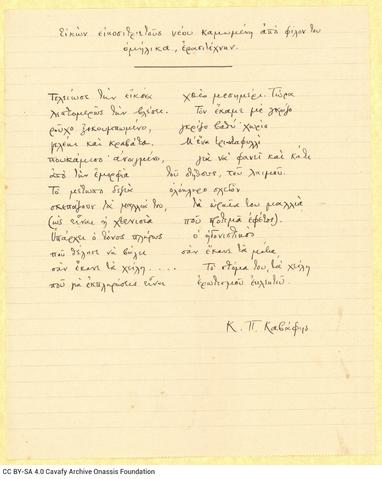 Εἰκὼν εἰκοσιτριετοῦς νέου καμωμένη ἀπὸ φίλον του
ὁμήλικα, ἐρασιτέχνην.
Τελείωσε τὴν εἰκόνα χθὲς μεσημέρι. Τώρα
λεπτομερῶς τὴν βλέπει. Τὸν ἔκαμε μὲ γκρίζο
ροῦχο ξεκουμπωμένο, γκρίζο βαθύ· χωρὶς
γελέκι καὶ κραβάτα. Μ' ἕνα τριανταφυλλὶ
πουκάμισο· ἀνοιγμένο, γιὰ νὰ φανεῖ καὶ κάτι
ἀπὸ τὴν ἐμορφιὰ τοῦ στήθους, τοῦ λαιμοῦ.
Τὸ μέτωπο δεξιὰ ὁλόκληρο σχεδὸν
σκεπάζουν τὰ μαλλιά του, τὰ ὡραῖα του μαλλιὰ
(ὡς εἶναι ἡ χτενισιὰ ποῦ προτιμᾶ ἐφέτος).
Ὑπάρχει ὁ τόνος πλήρως ὁ ἡδονιστικὸς
ποῦ θέλησε νὰ βάλει σὰν ἔκανε τὰ μάτια,
σὰν ἔκανε τὰ χείλη..... Τὸ στόμα του, τὰ χείλη
ποῦ γιὰ ἐκπληρώσεις εἶναι ἐρωτισμοῦ ἐκλεκτοῦ.
Κ. Π. Καβάφης
CC BY-SA 4.0 Cavafy Archive Onassis Foundation